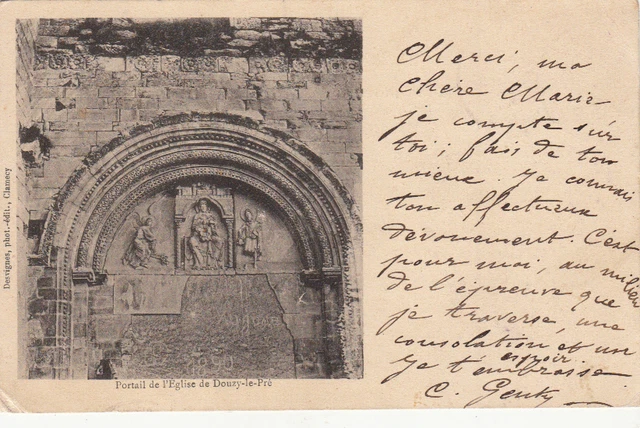 Desvignes, phot.-édit., Clamecy
Portail de l'Église de Douzy-le-Pré
Merci, ma
chère Marie
je compte sur
toi ; fais de ton
mieux. Je connais
ton affectueux
dévouement. C'est
pour moi, au milieu
de l'épreuve que
je traverse, une
consolation et un
espoir
Je t'embrasse
C.